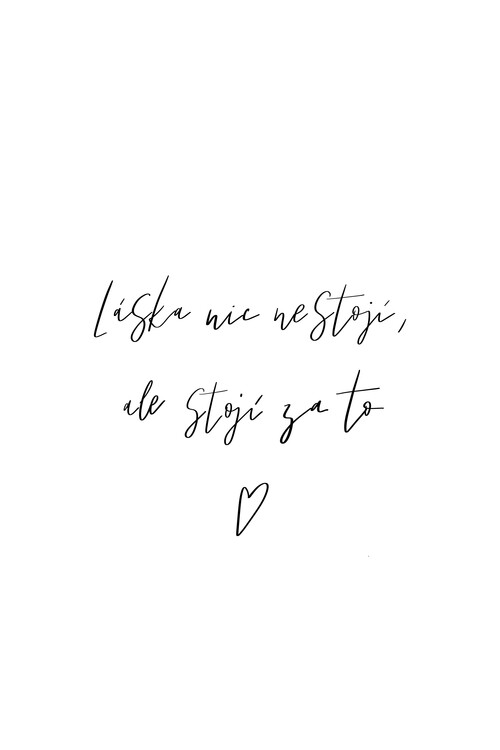 Láska nic nestojí,
ale stojí za to